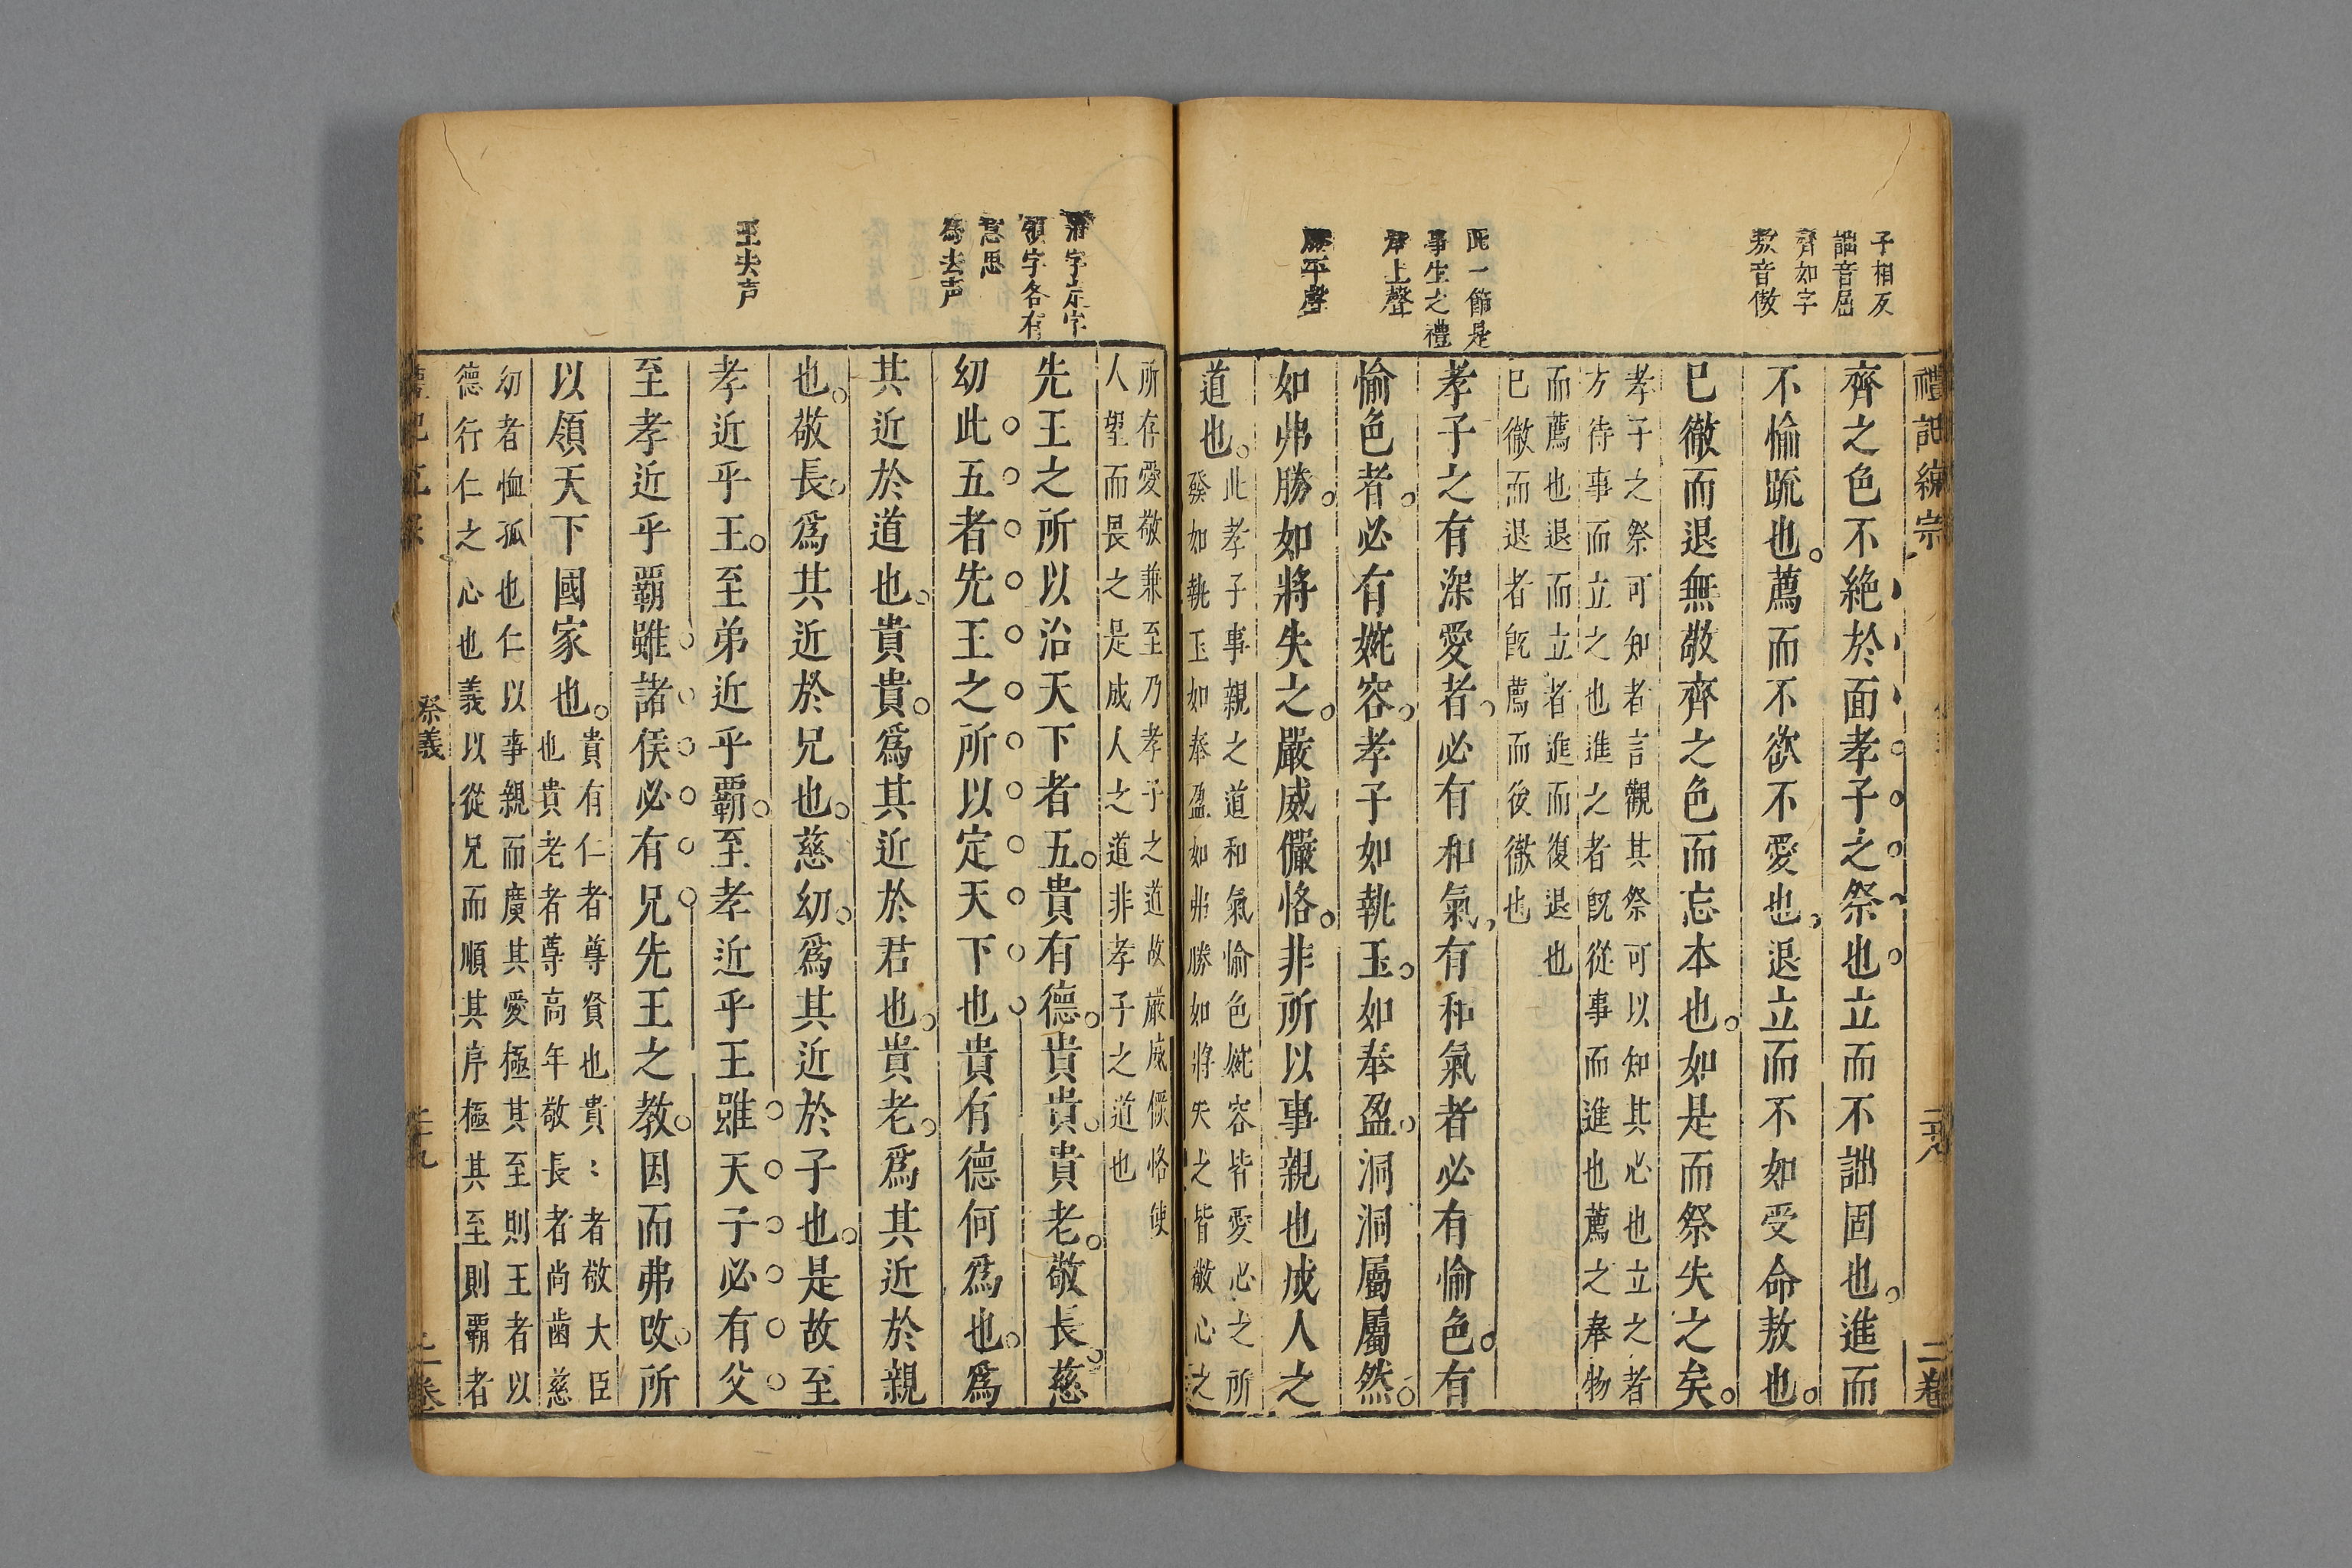 禮記纘宗 二卷
子相反
詘音屈
齊如字
敖音傲
此一節是
事生之禮
上聲
勝平聲
齊之色不絕於面孝子之祭也立而不詘固也進而
不愉䟽也薦而不欲不愛也退立而不如受命敖也
已徹而退無敬齊之色而忘本也如是而祭失之矣
孝子之祭可知者言觀其祭可以知其心也立之者
方待事而立之也進之者旣從事而進也薦之奉物
而薦也退而立者進而復退也
已徹而退者旣薦而後徹也
孝子之有深愛者必有和氣有和氣者必有愉色有
愉色者必有婉容孝子如執玉如奉盈洞洞屬屬然
如弗勝如將失之嚴威儼恪非所以事親也成人之
道也
此孝子事親之道和氣愉色婉容皆愛心之所
發如執玉如奉盈如弗勝如將失之皆敬心之
所存愛敬兼至乃孝子之道故嚴威儼恪使
人望而畏之是成人之道非孝子之道也
治字定字
領字各有
意思
爲去声
王去声
先王之所以治天下者五貴有德貴貴貴老敬長慈
幼此五者先王之所以定天下也貴有德何爲也爲
其近於道也貴貴爲其近於君也貴老爲其近於親
也敬長爲其近於兄也慈幼爲其近於子也是故至
孝近乎王至弟近乎覇至孝近乎王雖天子必有父
至孝近乎覇雖諸侯必有兄先王之教因而弗改所
以領天下國家也
貴有仁者尊賢也貴〻者敬大臣
也貴老者尊高年敬長者尚齒慈
幼者恤孤也仁以事親而廣其愛極其至則王者以
德行仁之心也義以從兄而順其序極其至則覇者
祭義